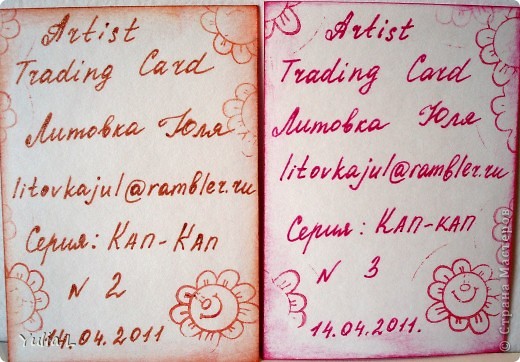 Artist
Trading Card
Литовка Юля
litovkajul@rambler.ru
Серия: Кап-Кап
N 2
14.04.2011
Artist
Trading Card
Литовка Юля
litovkajul@rambler.ru
Серия: Кап-кап
N 3
14.04.2011.
© Страна Мастеров